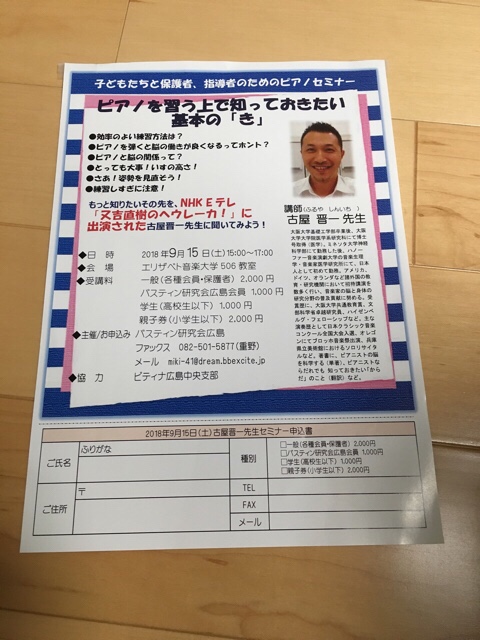 子どもたちと保護者、指導者のためのピアノセミナー
ピアノを習う上で知っておきたい
基本の「き」
●効率のよい練習方法は？
●ピアノを弾くと脳の働きが良くなるってホント？
●ピアノと脳の関係って？
●とっても大事！いすの高さ！
●さあ！姿勢を見直そう！
●練習しすぎに注意！
もっと知りたいその先を、NHK Eテレ
「又吉直樹のヘウレーカ！」に
出演された古屋晋一先生に聞いてみよう！
講師(ふるや しんいち )
古屋 晋一 先生
大阪大学基礎工学部卒業後、大阪
大学大学院医学系研究科にて博士
号取得（医学）。ミネソタ大学神経
科学部にて勤務した後、ハノー
ファー音楽演劇大学の音楽生理
学・音楽家医学研究所にて、日本
人として初めて勤務。アメリカ、
ドイツ、オランダなど諸外国の教
育・研究機関において招待講演を
数多く行い、音楽家の脳と身体の
研究分野の普及貢献に努める。受
賞歴に、大阪大学共通教育賞、文
部科学省卓越研究員、ハイゼンベ
ルグ・フェローシップなど。主な
演奏歴として日本クラシック音楽
コンクール全国大会入選、オレゴ
ンにてブロッホ音楽祭出演、兵庫
県立美術館におけるソロリサイタ
ルなど。著書に、ピアニストの脳
を科学する（単著）、ピアニストなら
だれでも知っておきたい「から
だ」のこと（翻訳）など。
◆日 時 2018年9月15日(土)15:00〜17:00
◆会 場 エリザベト音楽大学 506 教室
◆受講料 一般(各種会員・保護者) 2.000 円
バスティン研究会広島会員 1.000 円
学生(高校生以下) 1.000 円
親子券(小学生以下) 2.000 円
◆主催/お申込み バスティン研究会広島
ファックス 082-501-5877(重野)
メール miki-41@dream.bbexcite.jp
◆協 力 ピティナ広島中央支部
2018年9月15日(土)古屋晋一先生セミナー申込書
ご氏名
ふりがな
種別
□一般(各種会員・保護者) 2.000円
□バスティン研究会広島会員 1.000円
□学生(高校生以下) 1.000円
□親子券(小学生以下) 2.000円
ご住所
〒
TEL
FAX
メール